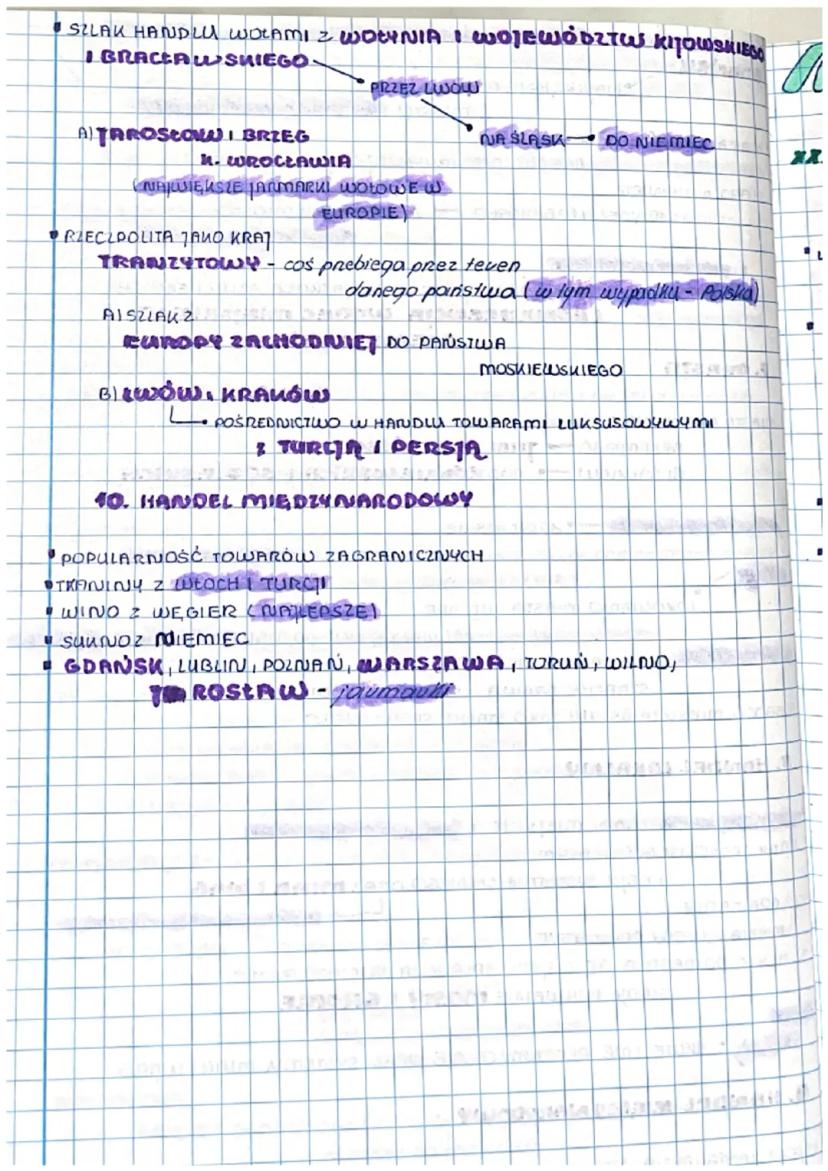 SZLAK HANDLU WOŁAMI Z WOŁYNIA I WOJEWÓDZTW KIJOWSKIEGO
I BRACŁAWSKIEGO
PRZEZ LWÓW
NA ŚLĄSK → DO NIEMIEC
A) JAROSŁOW I BRZEG
K. WROCŁAWIA
(NAJWIĘKSZE JARMARKI WOŁOWE W
EUROPIE)
RZECZPOLITA JAKO KRAJ
TRANZYTOWY - coś przebiega przez teren
danego państwa (w tym wypadku - Polska)
A) SZLAK Z
EUROPY ZACHODNIEJ DO PAŃSTWA
MOSKIEWSKIEGO
B) LWÓW I KRAKÓW
POŚREDNICTWO W HANDLU TOWARAMI LUKSUSOWYWYMI
Z TURCJĄ I PERSJĄ
10. HANDEL MIĘDZYNARODOWY
POPULARNOŚĆ TOWARÓW ZAGRANICZNYCH
TKANINY Z WŁOCH I TURCJI
WINO Z WĘGIER (NAJLEPSZE)
SUKNO Z NIEMIEC
GDAŃSK, LUBLIN, POZNAŃ, WARSZAWA, TORUŃ, WILNO,
JAROSŁAW - jarmarki